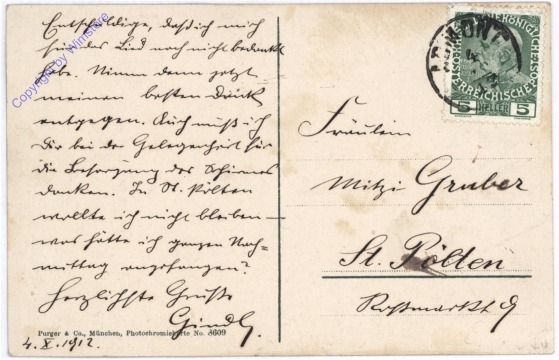 Entschuldige, daß ich mich
für das Lied noch nicht bedankt
habe. Nimm denn jetzt
meinen besten Dank
entgegen. Auch muß ich
Dir bei der Gelegenheit für
die Besorgung des Schirmes
danken. In St. Pölten
wollte ich nicht bleiben –
was hätte ich ganzen Nach=
mittag angefangen?
Herzlichste Grüße
4. X. 1912.
Purger & Co., München, Photochromiekarte No. 3609
Copyright by Winistore
5 HELLER 5
Fräulein
Mitzi Gruber
St. Pölten
Roßmarkt 9